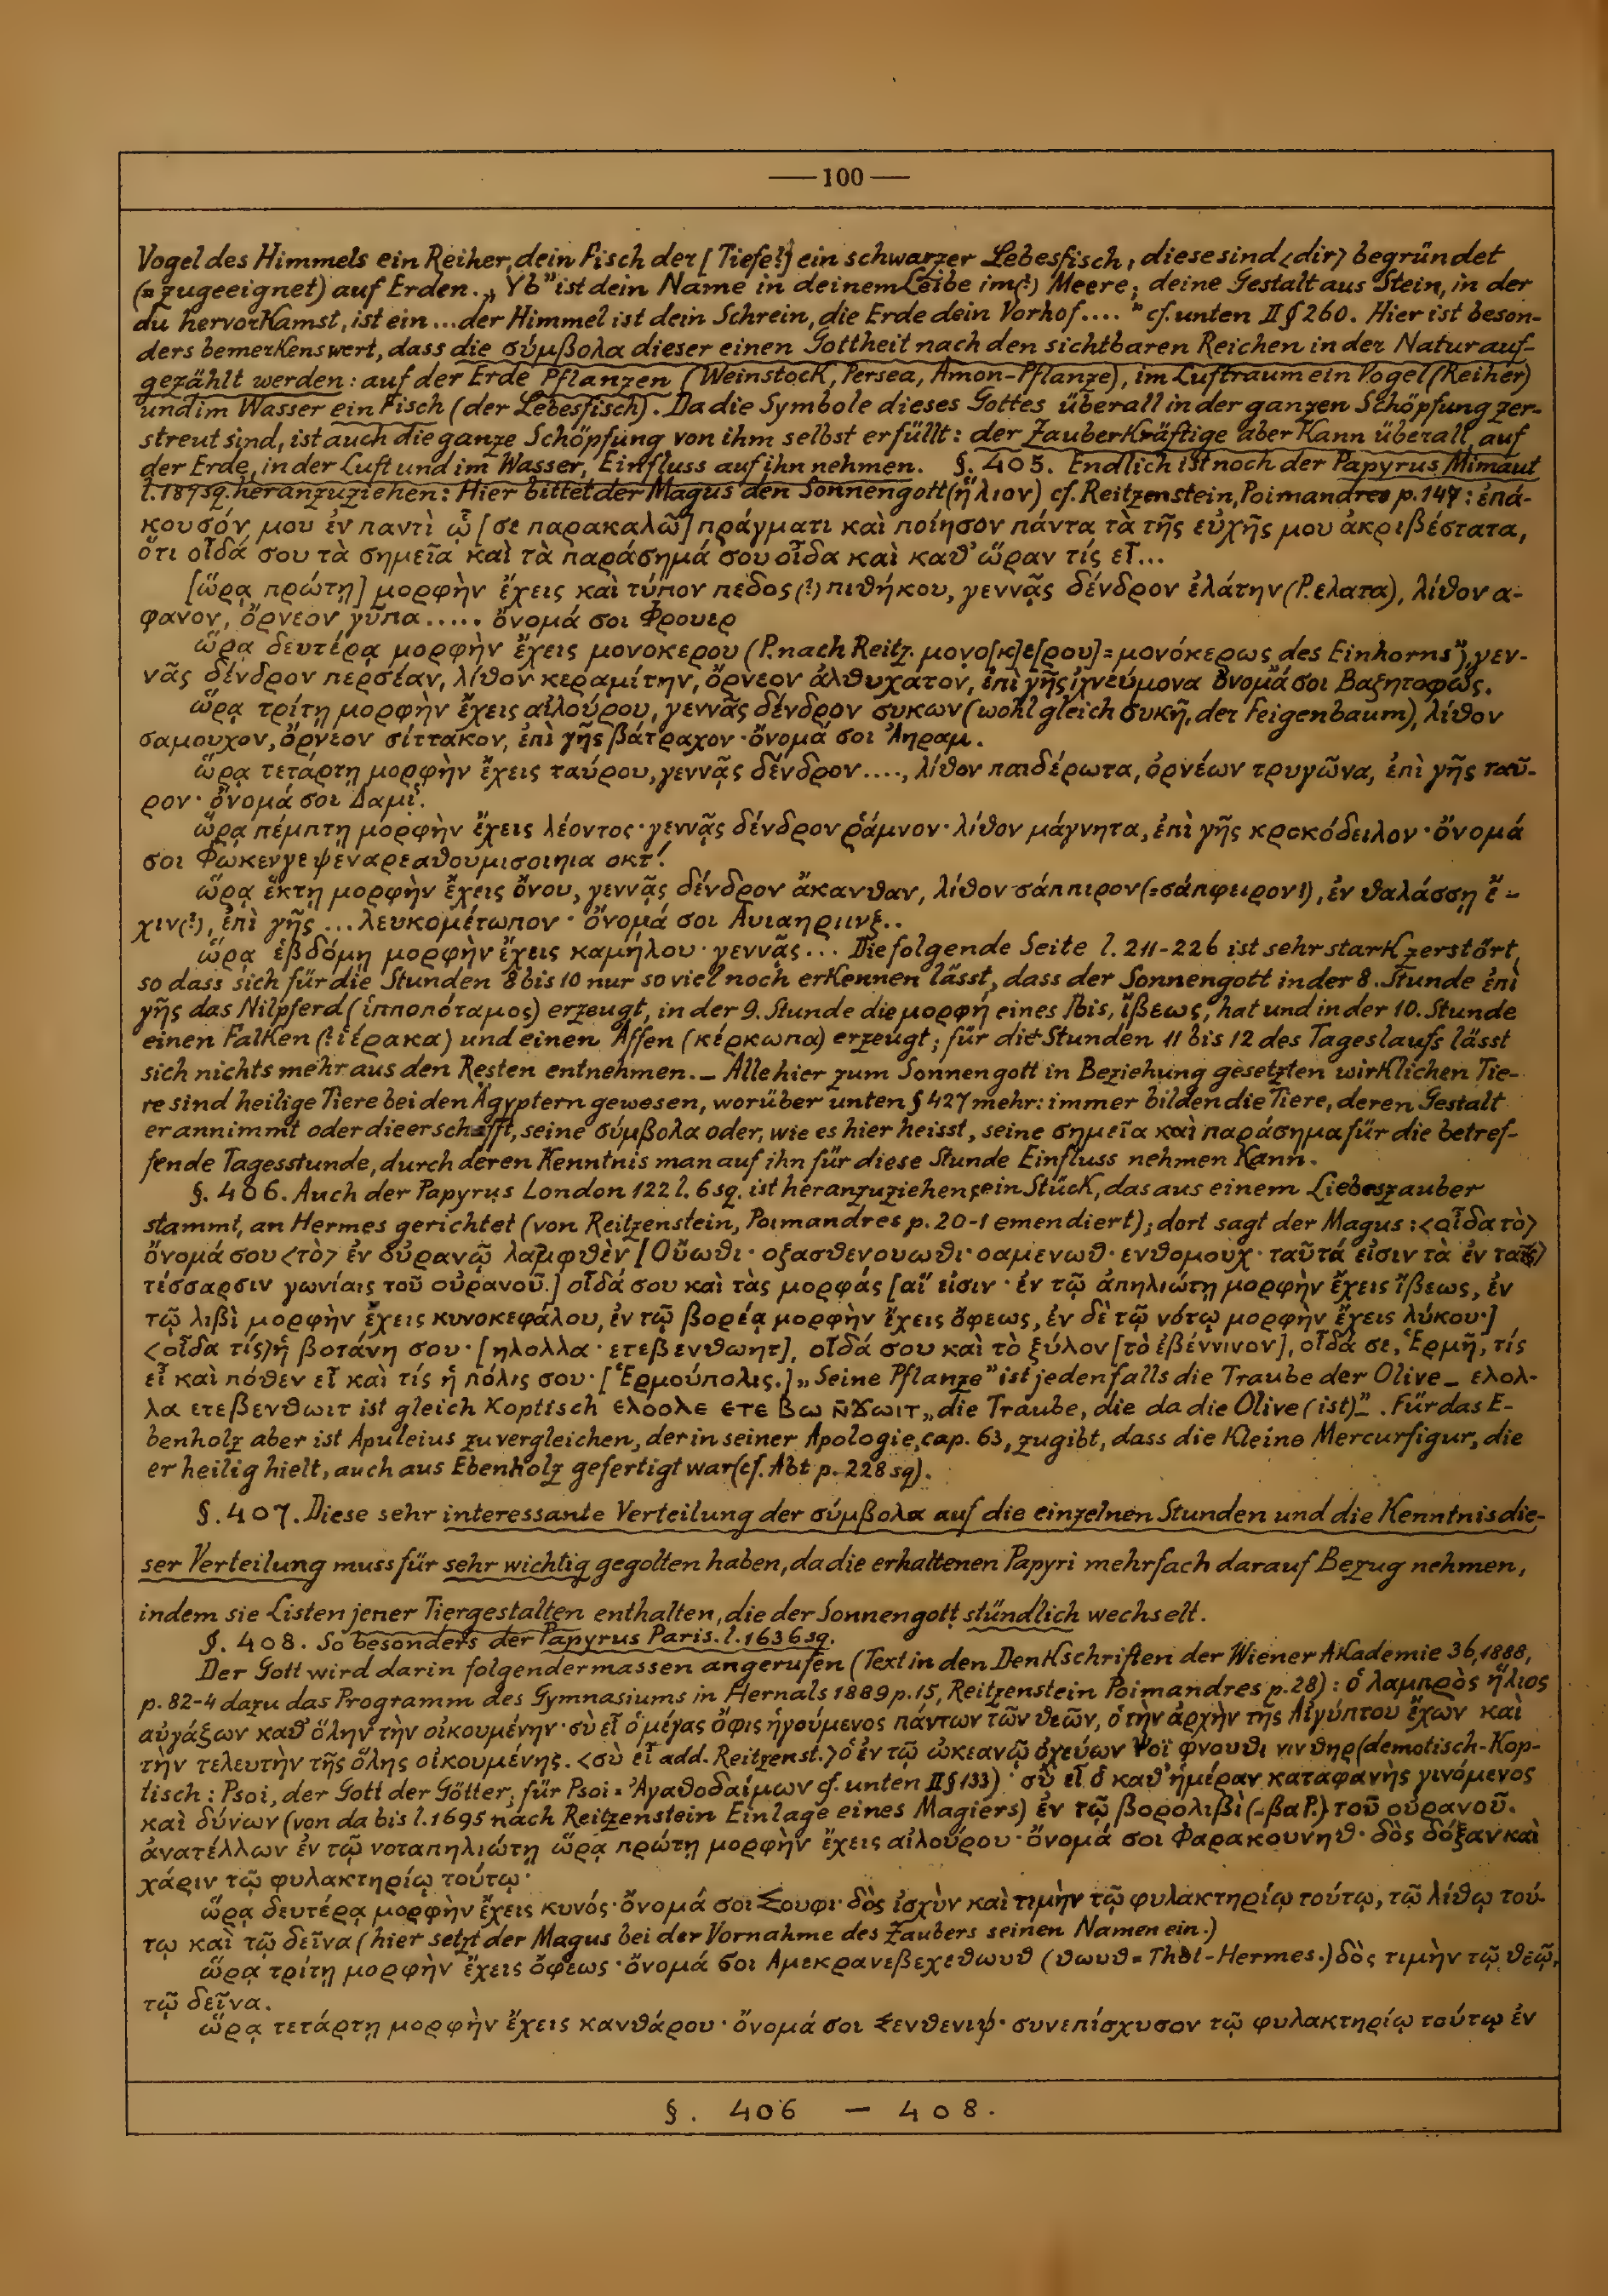 — 100 —
Vogel des Himmels ein Reiher, dein Fisch der [Tiefe?] ein schwarzer Lebesfisch, diese sind <dir> begründet
(= zugeeignet) auf Erden. „Yb" ist dein Name in deinem Leibe im(?) Meere; deine Gestalt aus Stein, in der
du hervorkamst, ist ein ... der Himmel ist dein Schrein, die Erde dein Vorhof...." cf. unten II § 260. Hier ist beson-
ders bemerkenswert, dass die σύμβολα dieser einen Gottheit nach den sichtbaren Reichen in der Natur auf-
gezählt werden: auf der Erde Pflanzen (Weinstock, Persea, Amon-Pflanze), im Luftraum ein Vogel (Reiher)
und im Wasser ein Fisch (der Lebesfisch). Da die Symbole dieses Gottes überall in der ganzen Schöpfung zer-
streut sind, ist auch die ganze Schöpfung von ihm selbst erfüllt: der Zauberkräftige aber kann überall, auf
der Erde, in der Luft und im Wasser, Einfluss auf ihn nehmen. §. 405. Endlich ist noch der Papyrus Mimaut
l. 189 sq. heranzuziehen: Hier bittet der Magus den Sonnengott (ἥλιον) cf. Reitzenstein, Poimandres p. 147: ἐπά-
κουσόν μου ἐν παντὶ ᾧ [σε παρακαλῶ] πράγματι καὶ ποίησον πάντα τὰ τῆς εὐχῆς μου ἀκριβέστατα,
ὅτι οἶδά σου τὰ σημεῖα καὶ τὰ παράσημά σου οἶδα καὶ καθ' ὥραν τίς εἶ...
[ὥρᾳ πρώτῃ] μορφὴν ἔχεις καὶ τύπον πεδος(?) πιθήκου, γεννᾷς δένδρον ἐλάτην (P. ελατα), λίθον α-
φανον, ὄρνεον γῦπα ..... ὄνομά σοι Φρουερ
ὥρᾳ δευτέρᾳ μορφὴν ἔχεις μονοκερου (P. nach Reitz. μονο[κ]ε[ρου] = μονόκερως „des Einhorns"), γεν-
νᾷς δένδρον περσέαν, λίθον κεραμίτην, ὄρνεον ἀλθυχάτον, ἐπὶ γῆς ἰχνεύμονα ὄνομά σοι Βαζητοφώς.
ὥρᾳ τρίτῃ μορφὴν ἔχεις αἰλούρου, γεννᾷς δένδρον συκων (wohl gleich συκῆ, der Feigenbaum), λίθον
σαμουχον, ὄρνεον σίττακον, ἐπὶ γῆς βάτραχον· ὄνομά σοι Ἀηραμ.
ὥρᾳ τετάρτῃ μορφὴν ἔχεις ταύρου, γεννᾷς δένδρον ...., λίθον παιδέρωτα, ὀρνέων τρυγῶνα, ἐπὶ γῆς ταῦ-
ρον· ὄνομά σοι Δαμί.
ὥρᾳ πέμπτῃ μορφὴν ἔχεις λέοντος· γεννᾷς δένδρον ῥάμνον· λίθον μάγνητα, ἐπὶ γῆς κροκόδειλον· ὄνομά
σοι Φωκενγεψεναρεαθουμισοιηια οκτ!
ὥρᾳ ἕκτῃ μορφὴν ἔχεις ὄνου, γεννᾷς δένδρον ἄκανθαν, λίθον σάππιρον (= σάπφειρον!), ἐν θαλάσσῃ ἔ-
χιν(?), ἐπὶ γῆς ... λευκομέτωπον· ὄνομά σοι
ὥρᾳ ἑβδόμῃ μορφὴν ἔχεις καμήλου· γεννᾷς ... Die folgende Seite l. 211-226 ist sehr stark zerstört,
so dass sich für die Stunden 8 bis 10 nur so viel noch erkennen lässt, dass der Sonnengott in der 8. Stunde ἐπὶ
γῆς das Nilpferd (ἱπποπόταμος) erzeugt, in der 9. Stunde die μορφή eines Ibis, ἴβεως, hat und in der 10. Stunde
einen Falken (? ἱέρακα) und einen Affen (κέρκωπα) erzeugt; für die Stunden 11 bis 12 des Tageslaufs lässt
sich nichts mehr aus den Resten entnehmen. — Alle hier zum Sonnengott in Beziehung gesetzten wirklichen Tie-
re sind heilige Tiere bei den Ägyptern gewesen, worüber unten § 427 mehr: immer bilden die Tiere, deren Gestalt
er annimmt oder die er schafft, seine σύμβολα oder, wie es hier heisst, seine σημεῖα καὶ παράσημα für die betref-
fende Tagesstunde, durch deren Kenntnis man auf ihn für diese Stunde Einfluss nehmen kann.
§. 406. Auch der Papyrus London 122 l. 6 sq. ist heranzuziehen, ein Stück, das aus einem Liebeszauber
stammt, an Hermes gerichtet (von Reitzenstein, Poimandres p. 20-1 emendiert); dort sagt der Magus: <οἶδα τὸ>
ὄνομά σου <τὸ> ἐν οὐρανῷ λαμφθὲν [Οὔωθι· οξασθενουωθι· οαμενωθ· ενθομουχ· ταῦτά εἰσιν τὰ ἐν ταῖς
τέσσαρσιν γωνίαις τοῦ οὐρανοῦ.] οἶδά σου καὶ τὰς μορφάς [αἵ εἰσιν· ἐν τῷ ἀπηλιώτῃ μορφὴν ἔχεις ἴβεως, ἐν
τῷ λιβὶ μορφὴν ἔχεις κυνοκεφάλου, ἐν τῷ βορέᾳ μορφὴν ἔχεις ὄφεως, ἐν δὲ τῷ νότῳ μορφὴν ἔχεις λύκου·]
<οἶδα τίς> ἡ βοτάνη σου· [ηλολλα· ετεβενθωητ], οἶδά σου καὶ τὸ ξύλον [τὸ ἐβέννινον], οἶδά σε, Ἑρμῆ, τίς
εἶ καὶ πόθεν εἶ καὶ τίς ἡ πόλις σου· [Ἑρμούπολις.] „Seine Pflanze" ist jedenfalls die Traube der Olive — ελολ-
λα ετεβενθωιτ ist gleich Koptisch ⲉⲗⲟⲟⲗⲉ ⲉⲧⲉ ⲃⲱ „die Traube, die da die Olive (ist)". Für das E-
benholz aber ist Apuleius zu vergleichen, der in seiner Apologie, cap. 63, zugibt, dass die kleine Mercurfigur, die
er heilig hielt, auch aus Ebenholz gefertigt war (cf. Abt p. 228 sq).
§. 407. Diese sehr interessante Verteilung der σύμβολα auf die einzelnen Stunden und die Kenntnis die-
ser Verteilung muss für sehr wichtig gegolten haben, da die erhaltenen Papyri mehrfach darauf Bezug nehmen,
indem sie Listen jener Tiergestalten enthalten, die der Sonnengott stündlich wechselt.
§. 408. So besonders der Papyrus Paris. l. 1636 sq.
Der Gott wird darin folgendermassen angerufen (Text in den Denkschriften der Wiener Akademie 36, 1888,
p. 82-4 dazu das Programm des Gymnasiums in Hernals 1889 p. 15, Reitzenstein Poimandres p. 28): ὁ λαμπρὸς ἥλιος
αὐγάζων καθ' ὅλην τὴν οἰκουμένην· σὺ εἶ ὁ μέγας ὄφις ἡγούμενος πάντων τῶν θεῶν, ὁ τὴν ἀρχὴν τῆς Αἰγύπτου ἔχων καὶ
τὴν τελευτὴν τῆς ὅλης οἰκουμένης. <σὺ εἶ add. Reitzenst.> ὁ ἐν τῷ ὠκεανῷ ὀχεύων Ψοϊ φνουθι νινθηρ (demotisch-Kop-
tisch: Psoi, der Gott der Götter; für Psoi = Ἀγαθοδαίμων cf. unten II § 133)· σὺ εἶ ὁ καθ' ἡμέραν καταφανὴς γινόμενος
καὶ δύνων (von da bis l. 1695 nach Reitzenstein Einlage eines Magiers) ἐν τῷ βορολιβὶ (= βα P.) τοῦ οὐρανοῦ.
ἀνατέλλων ἐν τῷ νοταπηλιώτῃ ὥρᾳ πρώτῃ μορφὴν ἔχεις αἰλούρου· ὄνομά σοι Φαρακουνηθ· δὸς δόξαν καὶ
χάριν τῷ φυλακτηρίῳ τούτῳ·
ὥρᾳ δευτέρᾳ μορφὴν ἔχεις κυνός· ὄνομά σοι Σουφι· δὸς ἰσχὺν καὶ τιμὴν τῷ φυλακτηρίῳ τούτῳ, τῷ λίθῳ τού-
τῳ καὶ τῷ δεῖνα (hier setzt der Magus bei der Vornahme des Zaubers seinen Namen ein.)
ὥρᾳ τρίτῃ μορφὴν ἔχεις ὄφεως· ὄνομά σοι Αμεκρανεβεχεθωυθ (θωυθ = Thot-Hermes.) δὸς τιμὴν τῷ θεῷ,
τῷ δεῖνα.
ὥρᾳ τετάρτῃ μορφὴν ἔχεις κανθάρου· ὄνομά σοι Σενθενιψ· συνεπίσχυσον τῷ φυλακτηρίῳ τούτῳ ἐν
§. 406 — 408.